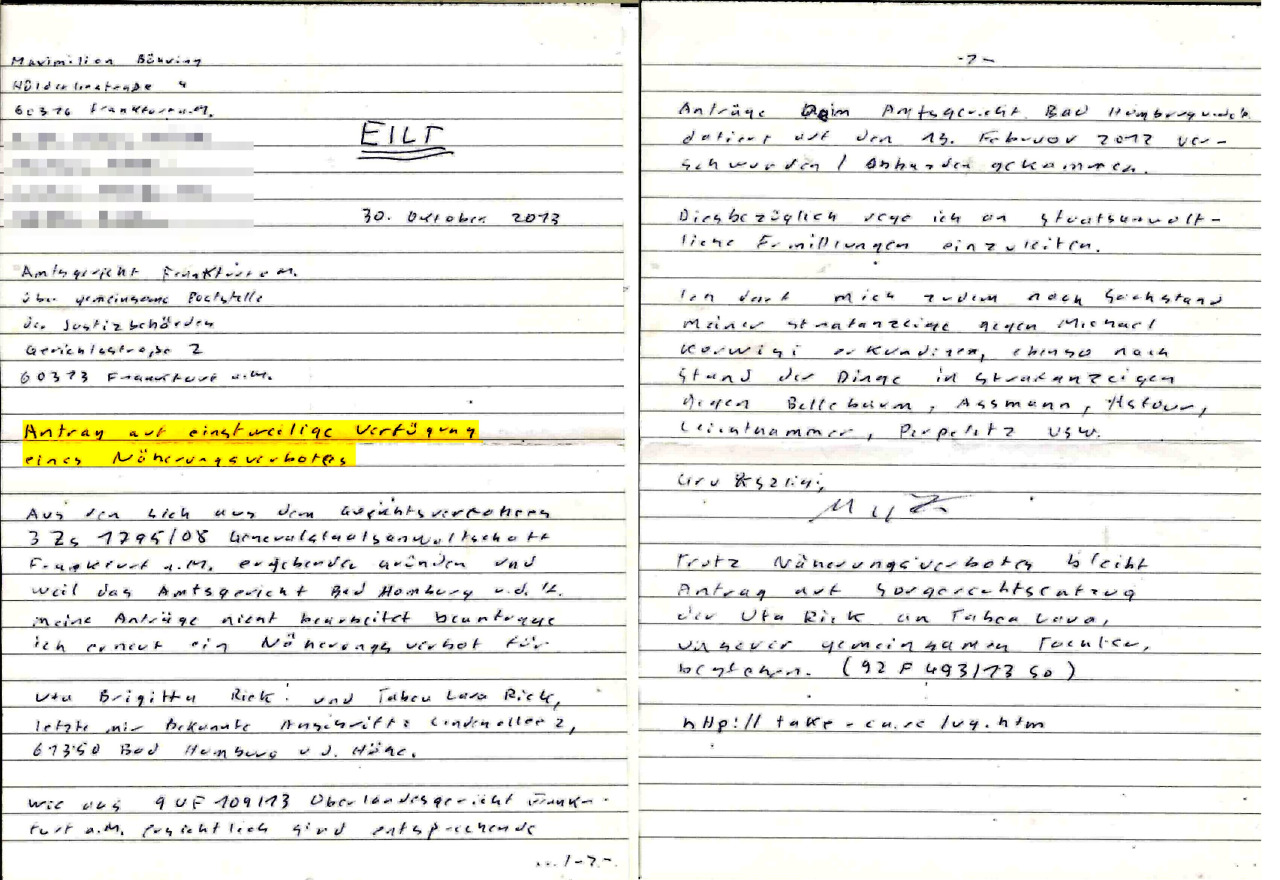 Maximilian Bähring
Hölderlinstraße 4
60316 Frankfurt a.M.
EILT
30. Oktober 2013
Amtsgericht Frankfurt a.M.
über gemeinsame Poststelle
der Justizbehörden
Gerichtsstraße 2
60313 Frankfurt a.M.
Antrag auf einstweilige Verfügung
eines Näherungsverbotes
Aus den sich aus dem
3 Zs 1795/08 Generalstaatsanwaltschaft
Frankfurt a.M. ergebenden gründen und
weil das Amtsgericht Bad Homburg v.d.H.
meine Anträge nicht bearbeitet beantrage
ich erneut ein Näherungsverbot für
Uta Brigitta Rick und Tabea Lara Rick,
letzte mir bekannte Anschrift: Lindenallee 2,
61350 Bad Homburg v.d. Höhe.
Wie aus 9 UF 109/13 Oberlandesgericht Frank-
furt a.M. ersichtlich sind entsprechende
... /-2-
-2-
Anträge beim Amtsgericht Bad Homburg v.d.H.
datiert auf den 13. Februar 2012 ver-
schwunden / Abhanden gekommen.
Diesbezüglich rege ich an staatsanwalt-
liche Ermittlungen einzuleiten.
Ich darf mich zudem nach Sachstand
meiner Strafanzeige gegen Michael
Korwisi erkundigen, ebenso nach
Stand der Dinge in Strafanzeigen
gegen Bellebaum, Assmann,
Leichthammer, Perpelitz usw.
Trotz Näherungsverbotes bleibt
Antrag auf Sorgerechtsentzug
der Uta Rick an Tabea Lara,
unserer gemeinsamen Tochter,
bestehen. (92 F 493/13 SO)
http:// take-ca.re/vg.htm